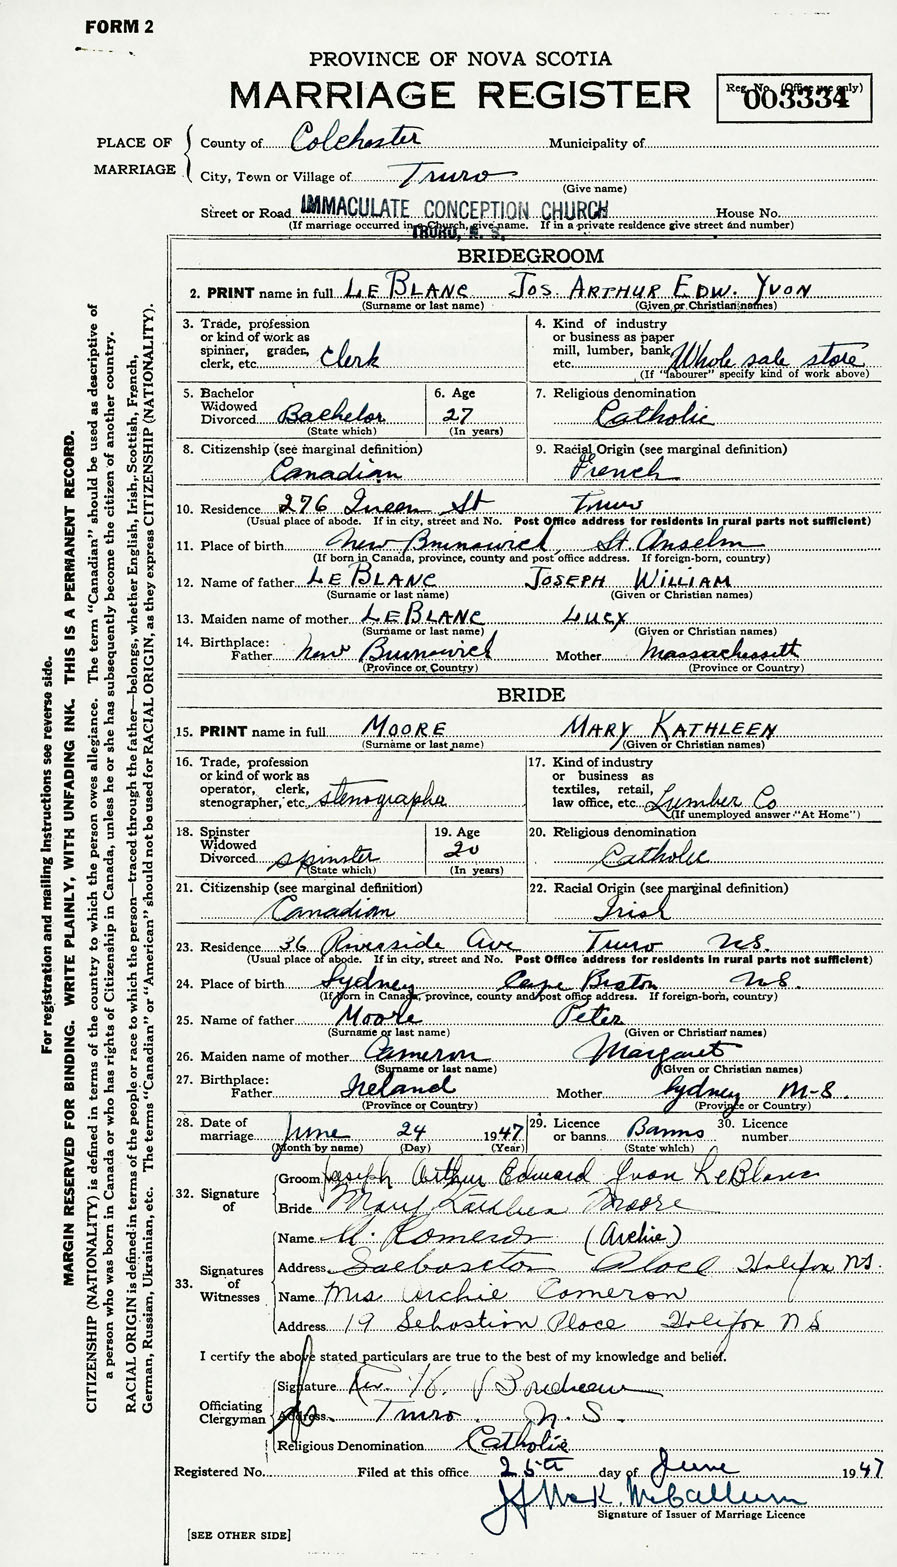 FORM 2
PROVINCE OF NOVA SCOTIA
MARRIAGE REGISTER
Reg. No. (Office use only)
003334
PLACE OF MARRIAGE
County of Colchester Municipality of
City, Town or Village of Truro
(Give name)
Street or Road IMMACULATE CONCEPTION CHURCH House No.
(If marriage occurred in a Church, give name. If in a private residence give street and number)
TRURO, N. S.
BRIDEGROOM
2. PRINT name in full LEBLANC JOS. ARTHUR EDW. YVON
(Surname or last name) (Given or Christian names)
3. Trade, profession or kind of work as spinner, grader, clerk, etc. Clerk
4. Kind of industry or business as paper mill, lumber, bank, etc. Whole sale store
(If "labourer" specify kind of work above)
5. Bachelor Widowed Divorced Bachelor
(State which)
6. Age 27
(In years)
7. Religious denomination
Catholic
8. Citizenship (see marginal definition)
Canadian
9. Racial Origin (see marginal definition)
French
10. Residence 276 Queen St Truro
(Usual place of abode. If in city, street and No. Post Office address for residents in rural parts not sufficient)
11. Place of birth New Brunswick, St. Anselm
(If born in Canada, province, county and post office address. If foreign-born, country)
12. Name of father LEBLANC JOSEPH WILLIAM
(Surname or last name) (Given or Christian names)
13. Maiden name of mother LEBLANC LUCY
(Surname or last name) (Given or Christian names)
14. Birthplace:
Father New Brunswick Mother Massachessetts
(Province or Country) (Province or Country)
BRIDE
15. PRINT name in full MOORE MARY KATHLEEN
(Surname or last name) (Given or Christian names)
16. Trade, profession or kind of work as operator, clerk, stenographer, etc. stenographer
17. Kind of industry or business as textiles, retail, law office, etc. Lumber Co
(If unemployed answer "At Home")
18. Spinster Widowed Divorced spinster
(State which)
19. Age 20
(In years)
20. Religious denomination
Catholic
21. Citizenship (see marginal definition)
Canadian
22. Racial Origin (see marginal definition)
Irish
23. Residence 36 Riverside Ave Truro N.S.
(Usual place of abode. If in city, street and No. Post Office address for residents in rural parts not sufficient)
24. Place of birth Sydney Cape Breton N.S.
(If born in Canada, province, county and post office address. If foreign-born, country)
25. Name of father Moore Peter
(Surname or last name) (Given or Christian names)
26. Maiden name of mother Cameron Margaret
(Surname or last name) (Given or Christian names)
27. Birthplace:
Father Ireland Mother Sydney N.S.
(Province or Country) (Province or Country)
28. Date of marriage June 24 1947
(Month by name) (Day) (Year)
29. Licence or banns Banns
(State which)
30. Licence number
32. Signature of
Groom Joseph Arthur Edward Yvon LeBlanc
Bride Mary Kathleen Moore
33. Signatures of Witnesses
Name A. Cameron (Archie)
Address Sebastian Place Halifax N.S.
Name Mrs Archie Cameron
Address 19 Sebastian Place Halifax N S
I certify the above stated particulars are true to the best of my knowledge and belief.
Officiating Clergyman
Signature Rev. H. Boudreau
Address Truro. N. S.
Religious Denomination Catholic
Registered No. Filed at this office 25th day of June 1947
McK. McCallum
Signature of Issuer of Marriage Licence
[SEE OTHER SIDE]
For registration and mailing instructions see reverse side.
MARGIN RESERVED FOR BINDING. WRITE PLAINLY, WITH UNFADING INK. THIS IS A PERMANENT RECORD.
CITIZENSHIP (NATIONALITY) is defined in terms of the country to which the person owes allegiance. The term "Canadian" should be used as descriptive of
a person who was born in Canada or who has rights of Citizenship in Canada, unless he or she has subsequently become the citizen of another country.
RACIAL ORIGIN is defined in terms of the people or race to which the person—traced through the father—belongs, whether English, Irish, Scottish, French,
German, Russian, Ukrainian, etc. The terms "Canadian" or "American" should not be used for RACIAL ORIGIN, as they express CITIZENSHIP (NATIONALITY).